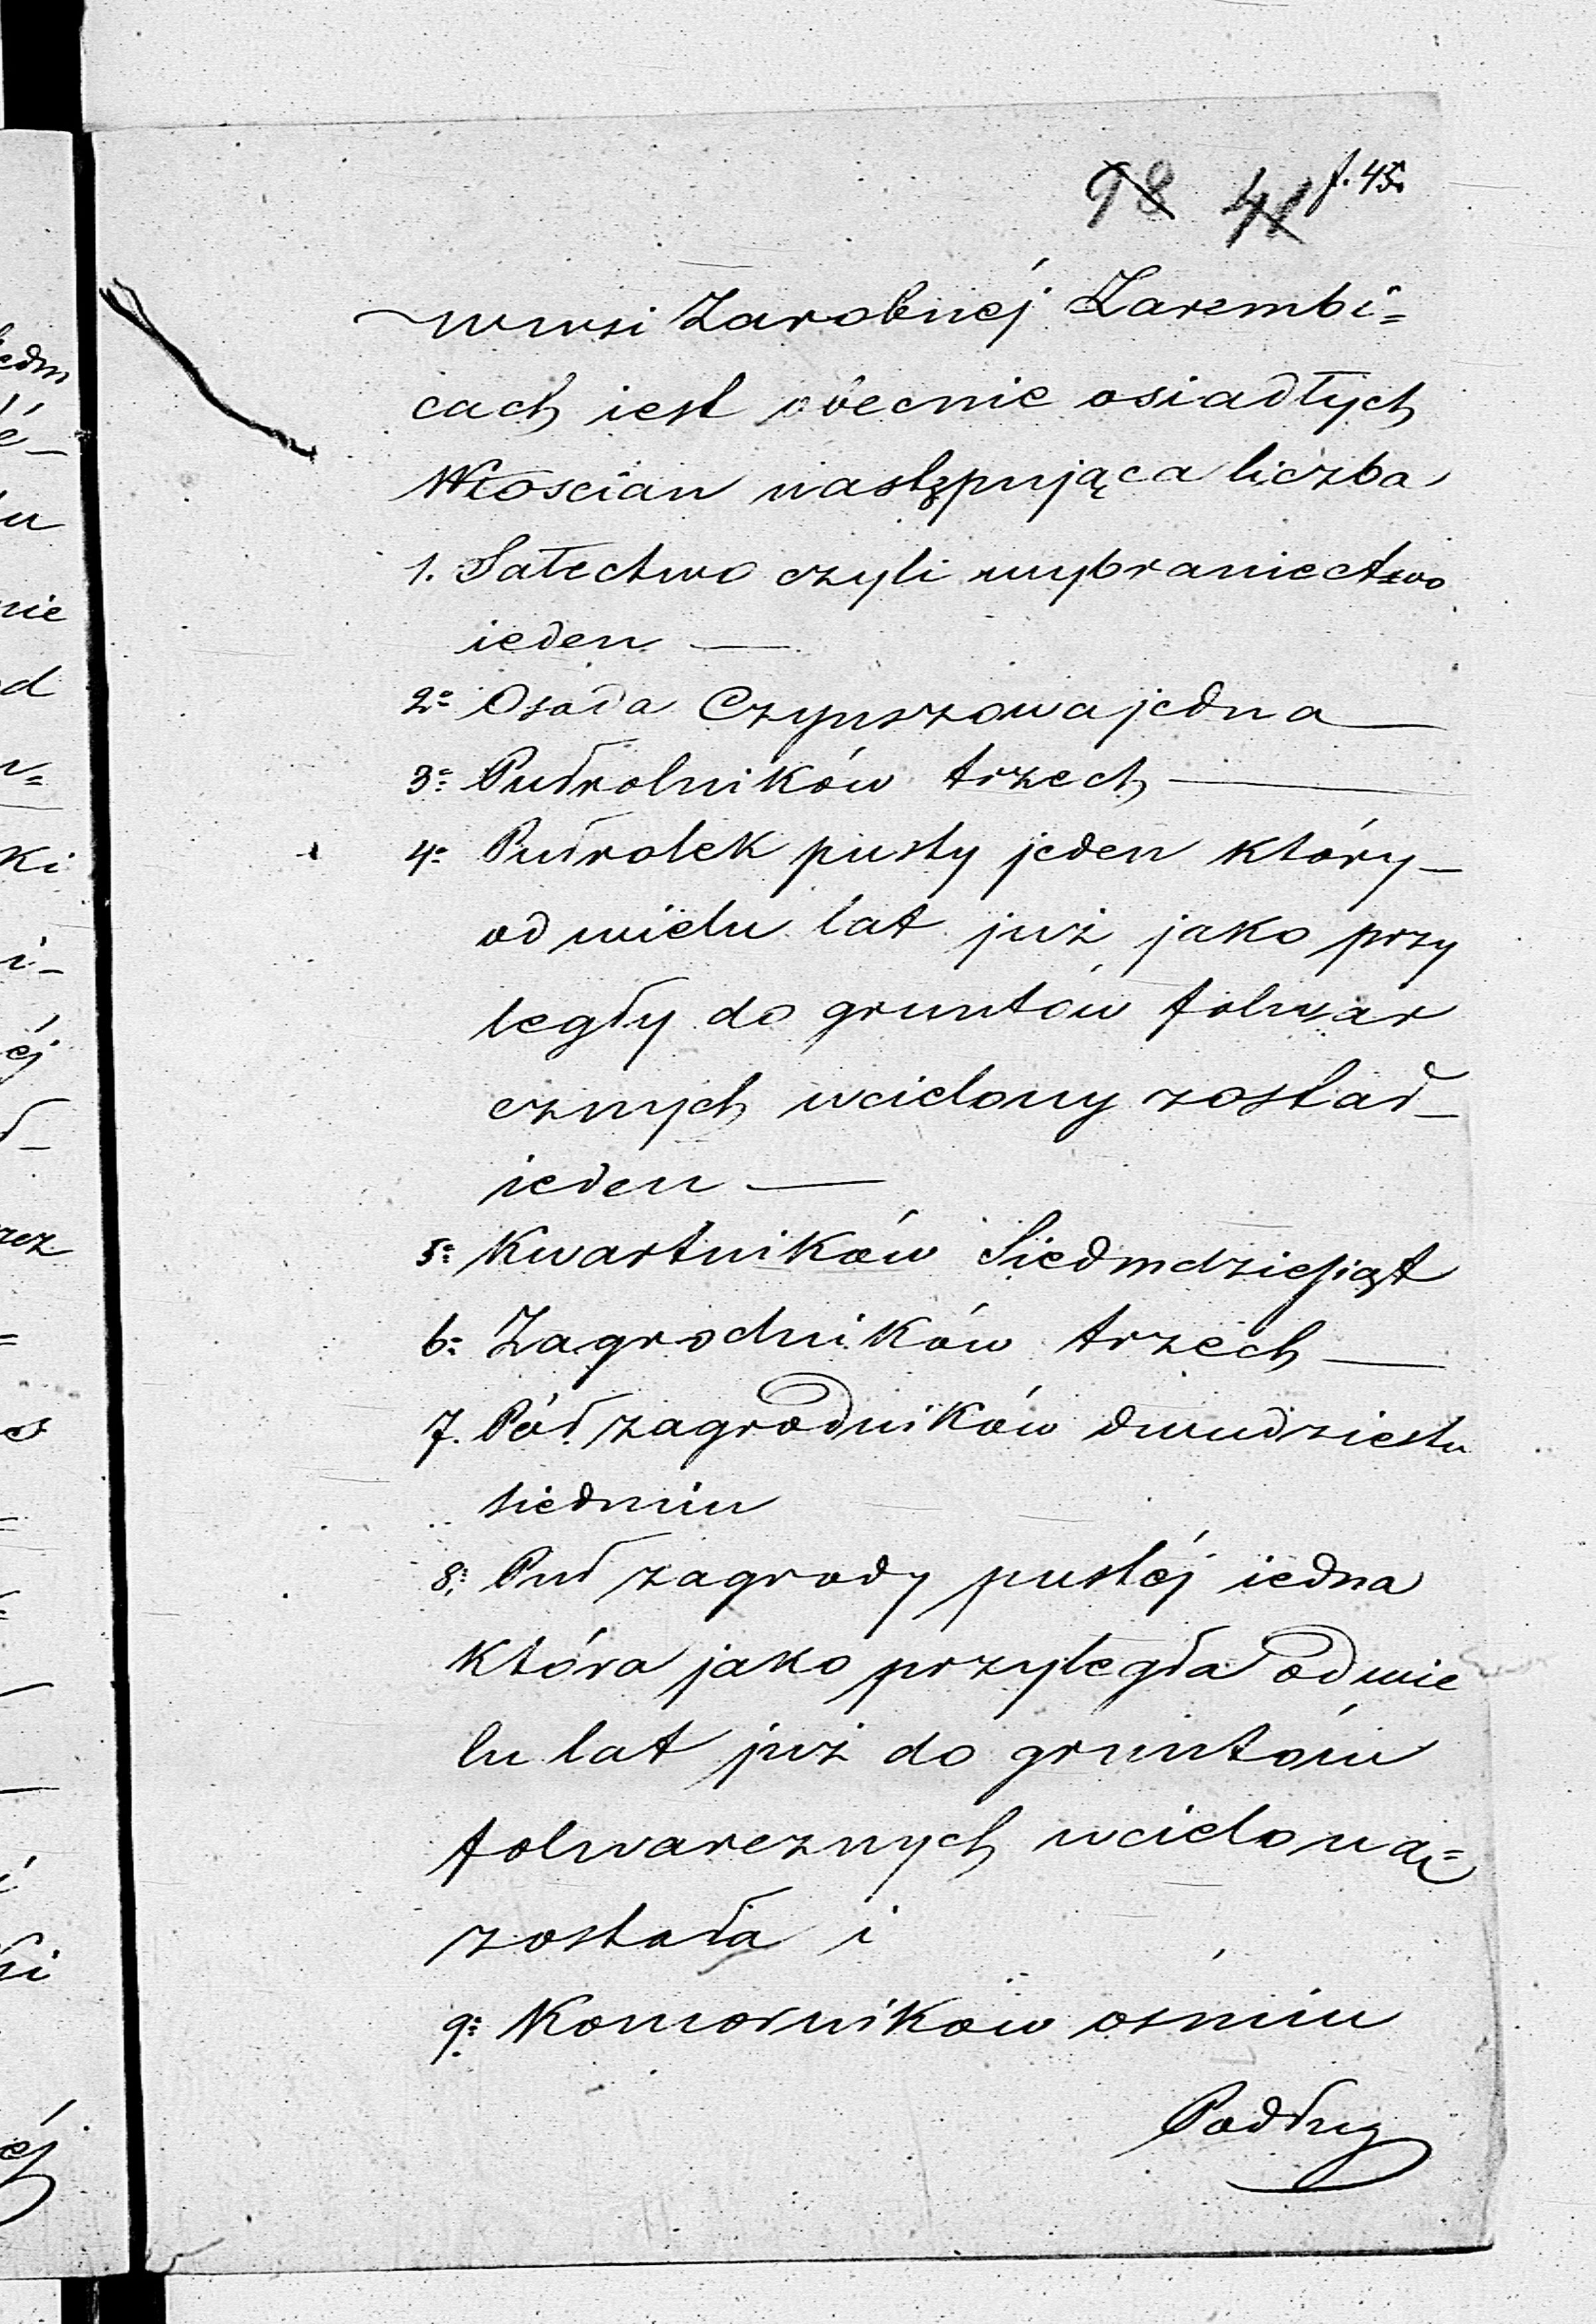 98 41 f. 45.
w wsi Zarobnéj Zarembi=
cach iest obecnie osiadłych
Włoscian następująca liczba
1. Sałectwo czyli wybraniectwo
ieden —
2º Osada Czynszowa jedna —
3º Pułrolników trzech —
4º Pułrolek pusty jeden który —
od wielu lat już jako przy
legły do gruntów folwar
cznych wcielony został —
ieden —
5º Kwartników Siedmdziesiąt
6º Zagrodników trzech —
7. Pół zagrodników dwudziestu
siedmiu
8º Puł zagrody pustéj iedna
która jako przyległa od wie
lu lat już do gruntów
folwarcznych wcielona=
została i
9º Komorników ośmiu
Podług
iedm
é —
u
nie
d
ki
i —
éj
rzez
éj